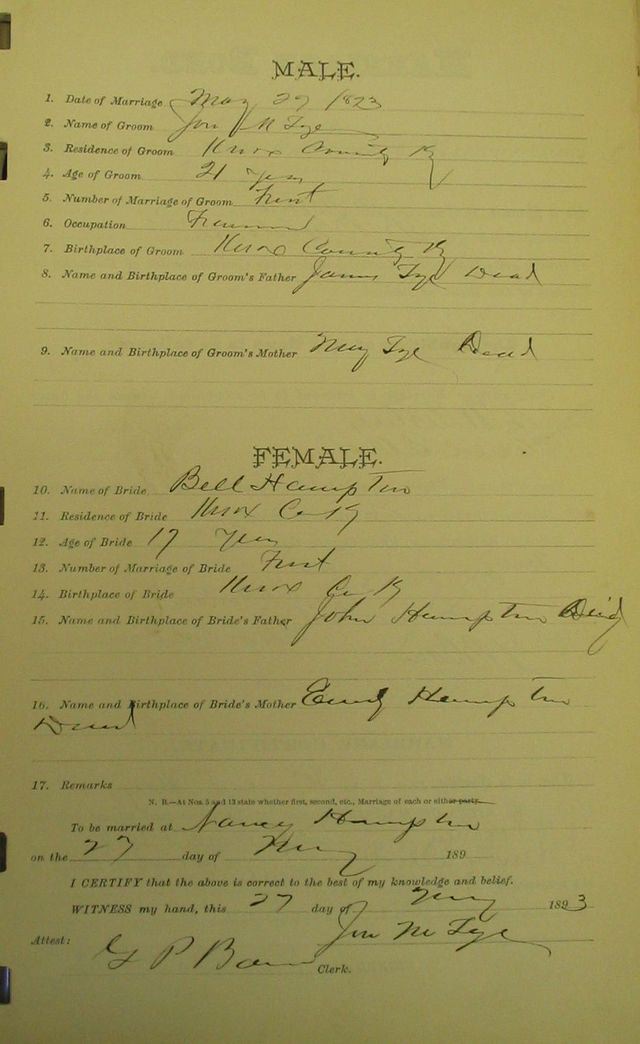 MALE.
1. Date of Marriage May 27 1893
2. Name of Groom M Tye
3. Residence of Groom Knox County Ky
4. Age of Groom 21 years
5. Number of Marriage of Groom First
6. Occupation
7. Birthplace of Groom Knox County Ky
8. Name and Birthplace of Groom's Father James Tye Dead
9. Name and Birthplace of Groom's Mother Tye Dead
FEMALE.
10. Name of Bride Bell Hampton
11. Residence of Bride Knox Co Ky
12. Age of Bride 17 years
13. Number of Marriage of Bride First
14. Birthplace of Bride Knox Co Ky
15. Name and Birthplace of Bride's Father John Hampton Dead
16. Name and Birthplace of Bride's Mother Hampton
Dead
17. Remarks
N. B.—At Nos. 5 and 13 state whether first, second, etc., Marriage of each or either party.
To be married at Nancy Hampton
on the 27 day of May 189
I CERTIFY that the above is correct to the best of my knowledge and belief.
WITNESS my hand, this 27 day of May 1893
M Tye
Attest: G P
Clerk.